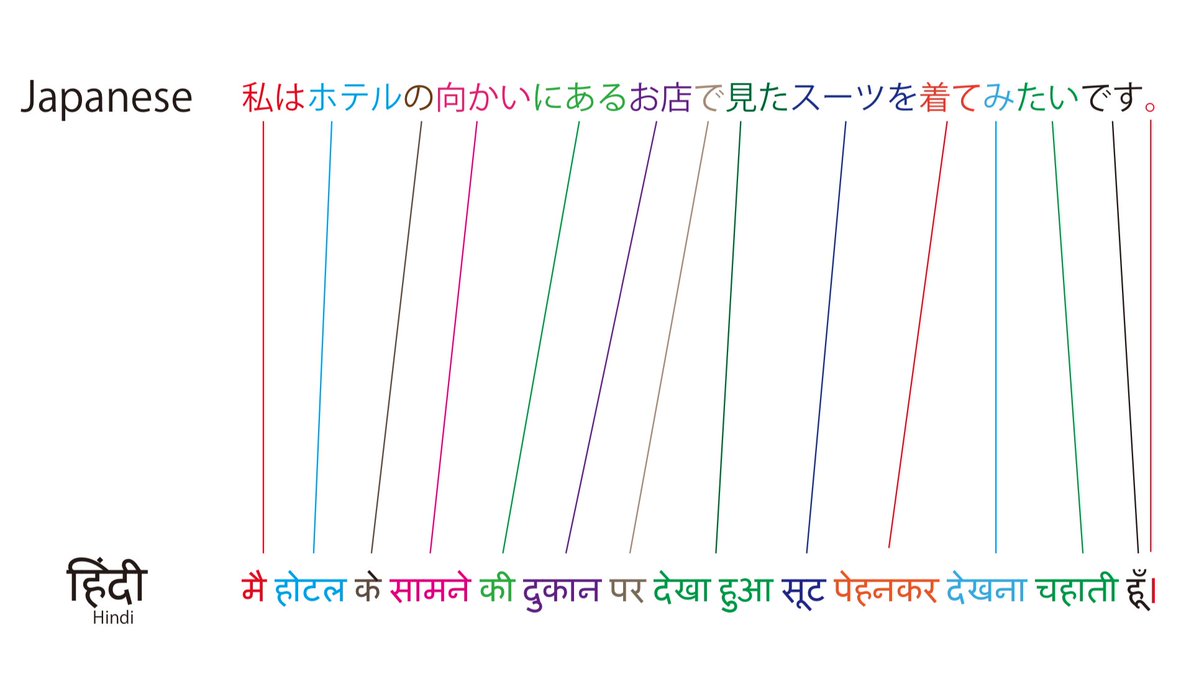 Japanese 私はホテルの向かいにあるお店で見たスーツを着てみたいです。
हिंदी मै होटल के सामने की दुकान पर देखा हुआ सूट पेहनकर देखना चहाती हूँ।
Hindi